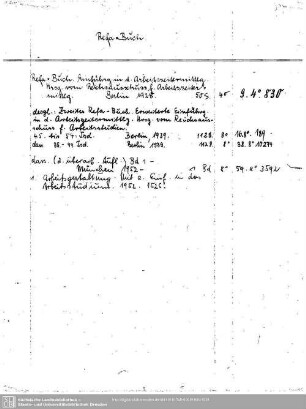 Refa-Buch
Refa-Buch. Einführg in d. Arbeitszeitermittlg.
Hrsg. vom Reichsausschuss f. Arbeitszeiter-
mittlg. Berlin 1928. 4° 9. 4° 830
dergl.: Zweites Refa-Buch. Erweiterte Einführung
in d. Arbeitszeitermittlg. Hrsg. vom Reichsaus-
schuss f. Arbeitsstudien.
45. bis 57. Tsd. Berlin, 1939. 112 S. 8°
den. 38.-44. Tsd. Berlin, 1939. 112 S. 8° 38. 8°
dass. (2. überarb. Aufl.) Bd 1-
München 1952- 1 Bd 8° 54. 8°
1. Arbeitsgestaltung. Mit e. Einf. in das
Arbeitsstudium. 1952.
Sächsische Landesbibliothek -
Staats- und Universitätsbibliothek Dresden